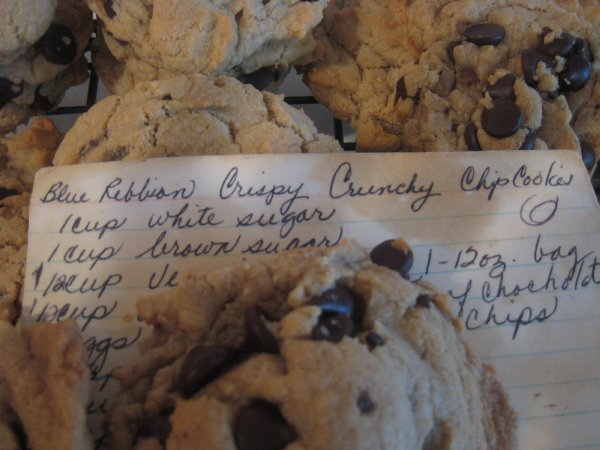 Blue Ribbion Crispy Crunchy Chip Cookies
1 cup white sugar
1 cup brown sugar
1/2 cup Ve
1/2 cup
ggs
1-12oz. bag
of Chocholate
Chips